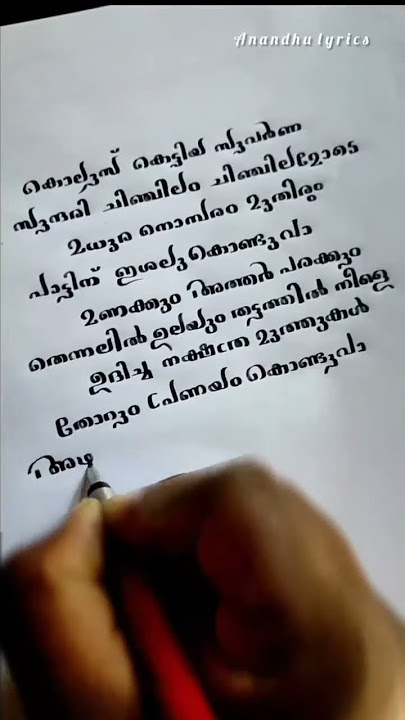 Anandhu lyrics
കൊലുസ് കെട്ടിയ സുവർണ
സുന്ദരി ചിഞ്ചിലം ചിഞ്ചിലമോടെ
മധുര നൊമ്പരം മുതിരും
പാട്ടിന് ഇശലു കൊണ്ടുവാ
മണക്കും അത്തർ പരക്കും
തെന്നലിൽ ഉലയും തട്ടത്തിൽ നീളെ
ഉദിച്ച നക്ഷത്ര മുത്തുകൾ
തോറും പ്രണയം കൊണ്ടുവാ
അഴ